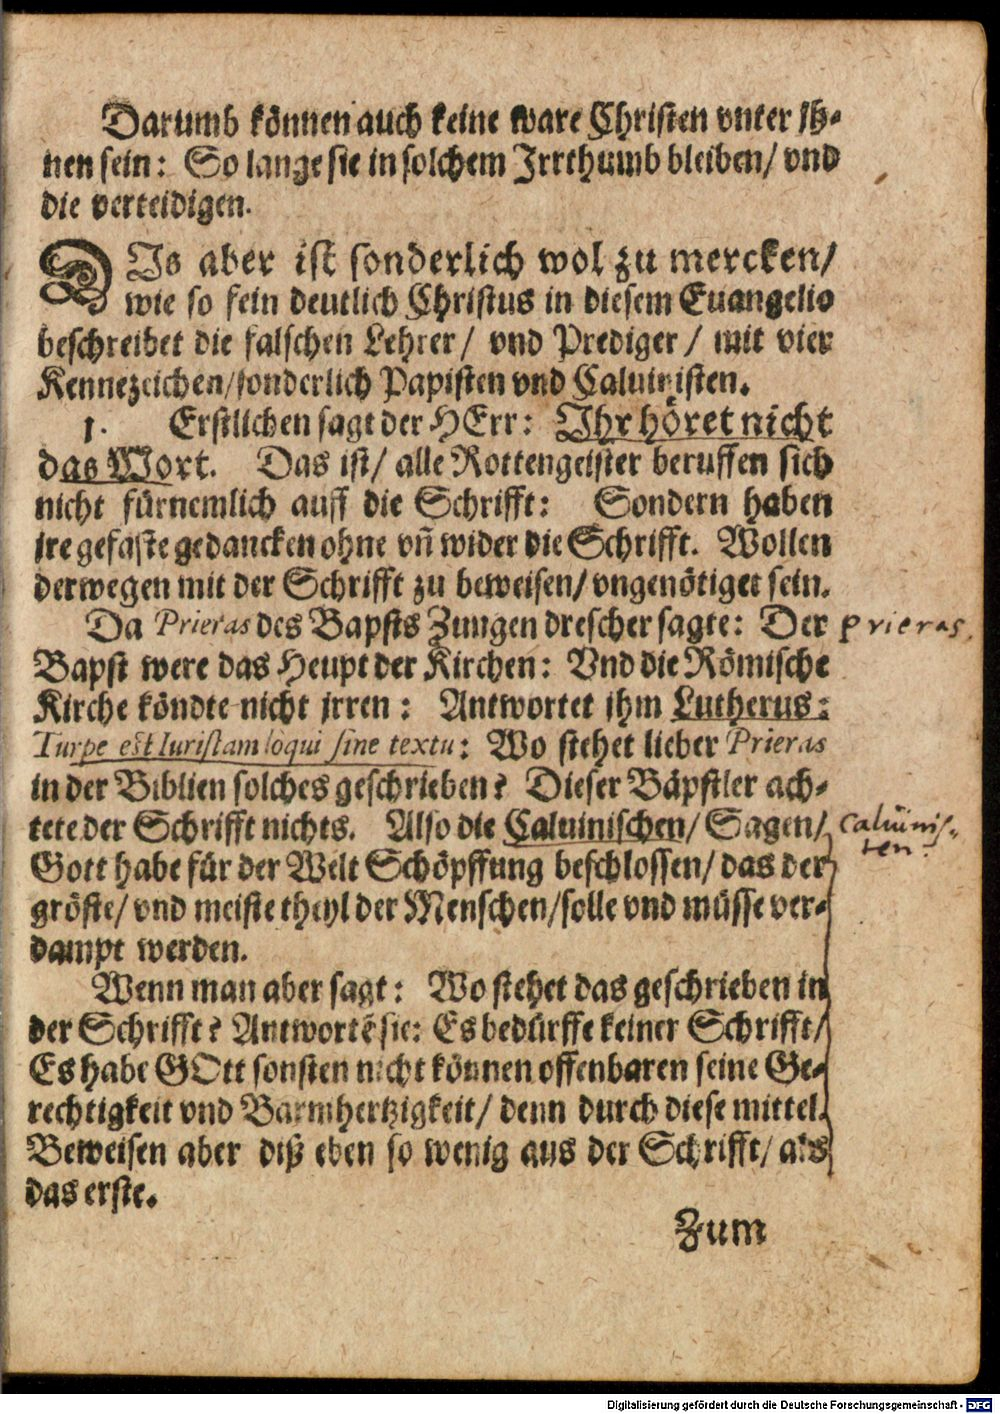 Darumb können auch keine ware Christen vnter jh-
nen sein: So lange sie in solchem Irrthumb bleiben/ vnd
die verteidigen.
DIs aber ist sonderlich wol zu mercken/
wie so fein deutlich Christus in diesem Euangelio
beschreibet die falschen Lehrer/ vnd Prediger/ mit vier
Kennezeichen/ sonderlich Papisten vnd Caluinisten.
1. Erstlichen sagt der HErr: Ihr höret nicht
das Wort. Das ist/ alle Rottengeister beruffen sich
nicht fürnemlich auff die Schrifft: Sondern haben
jre gefaste gedancken ohne vñ wider die Schrifft. Wollen
derwegen mit der Schrifft zu beweisen/ vngenötiget sein.
Da Prieras des Bapsts Zungen drescher sagte: Der
prieras.
Bapst were das Heupt der Kirchen: Vnd die Römische
Kirche köndte nicht jrren: Antwortet jhm Lutherus:
Turpe est Iuristam loqui sine textu: Wo stehet lieber Prieras
in der Biblien solches geschrieben? Dieser Bäpstler ach-
tete der Schrifft nichts. Also die Caluinischen/ Sagen/
Caluinis-
ten.
Gott habe für der Welt Schöpffung beschlossen/ das der
gröste/ vnd meiste theyl der Menschen/ solle vnd müsse ver-
dampt werden.
Wenn man aber sagt: Wo stehet das geschrieben in
der Schrifft? Antwortẽ sie: Es bedürffe keiner Schrifft/
Es habe GOtt sonsten nicht können offenbaren seine Ge-
rechtigkeit vnd Barmhertzigkeit/ denn durch diese mittel.
Beweisen aber diß eben so wenig aus der Schrifft/ als
das erste.
Zum
Digitalisierung gefördert durch die Deutsche Forschungsgemeinschaft - DFG